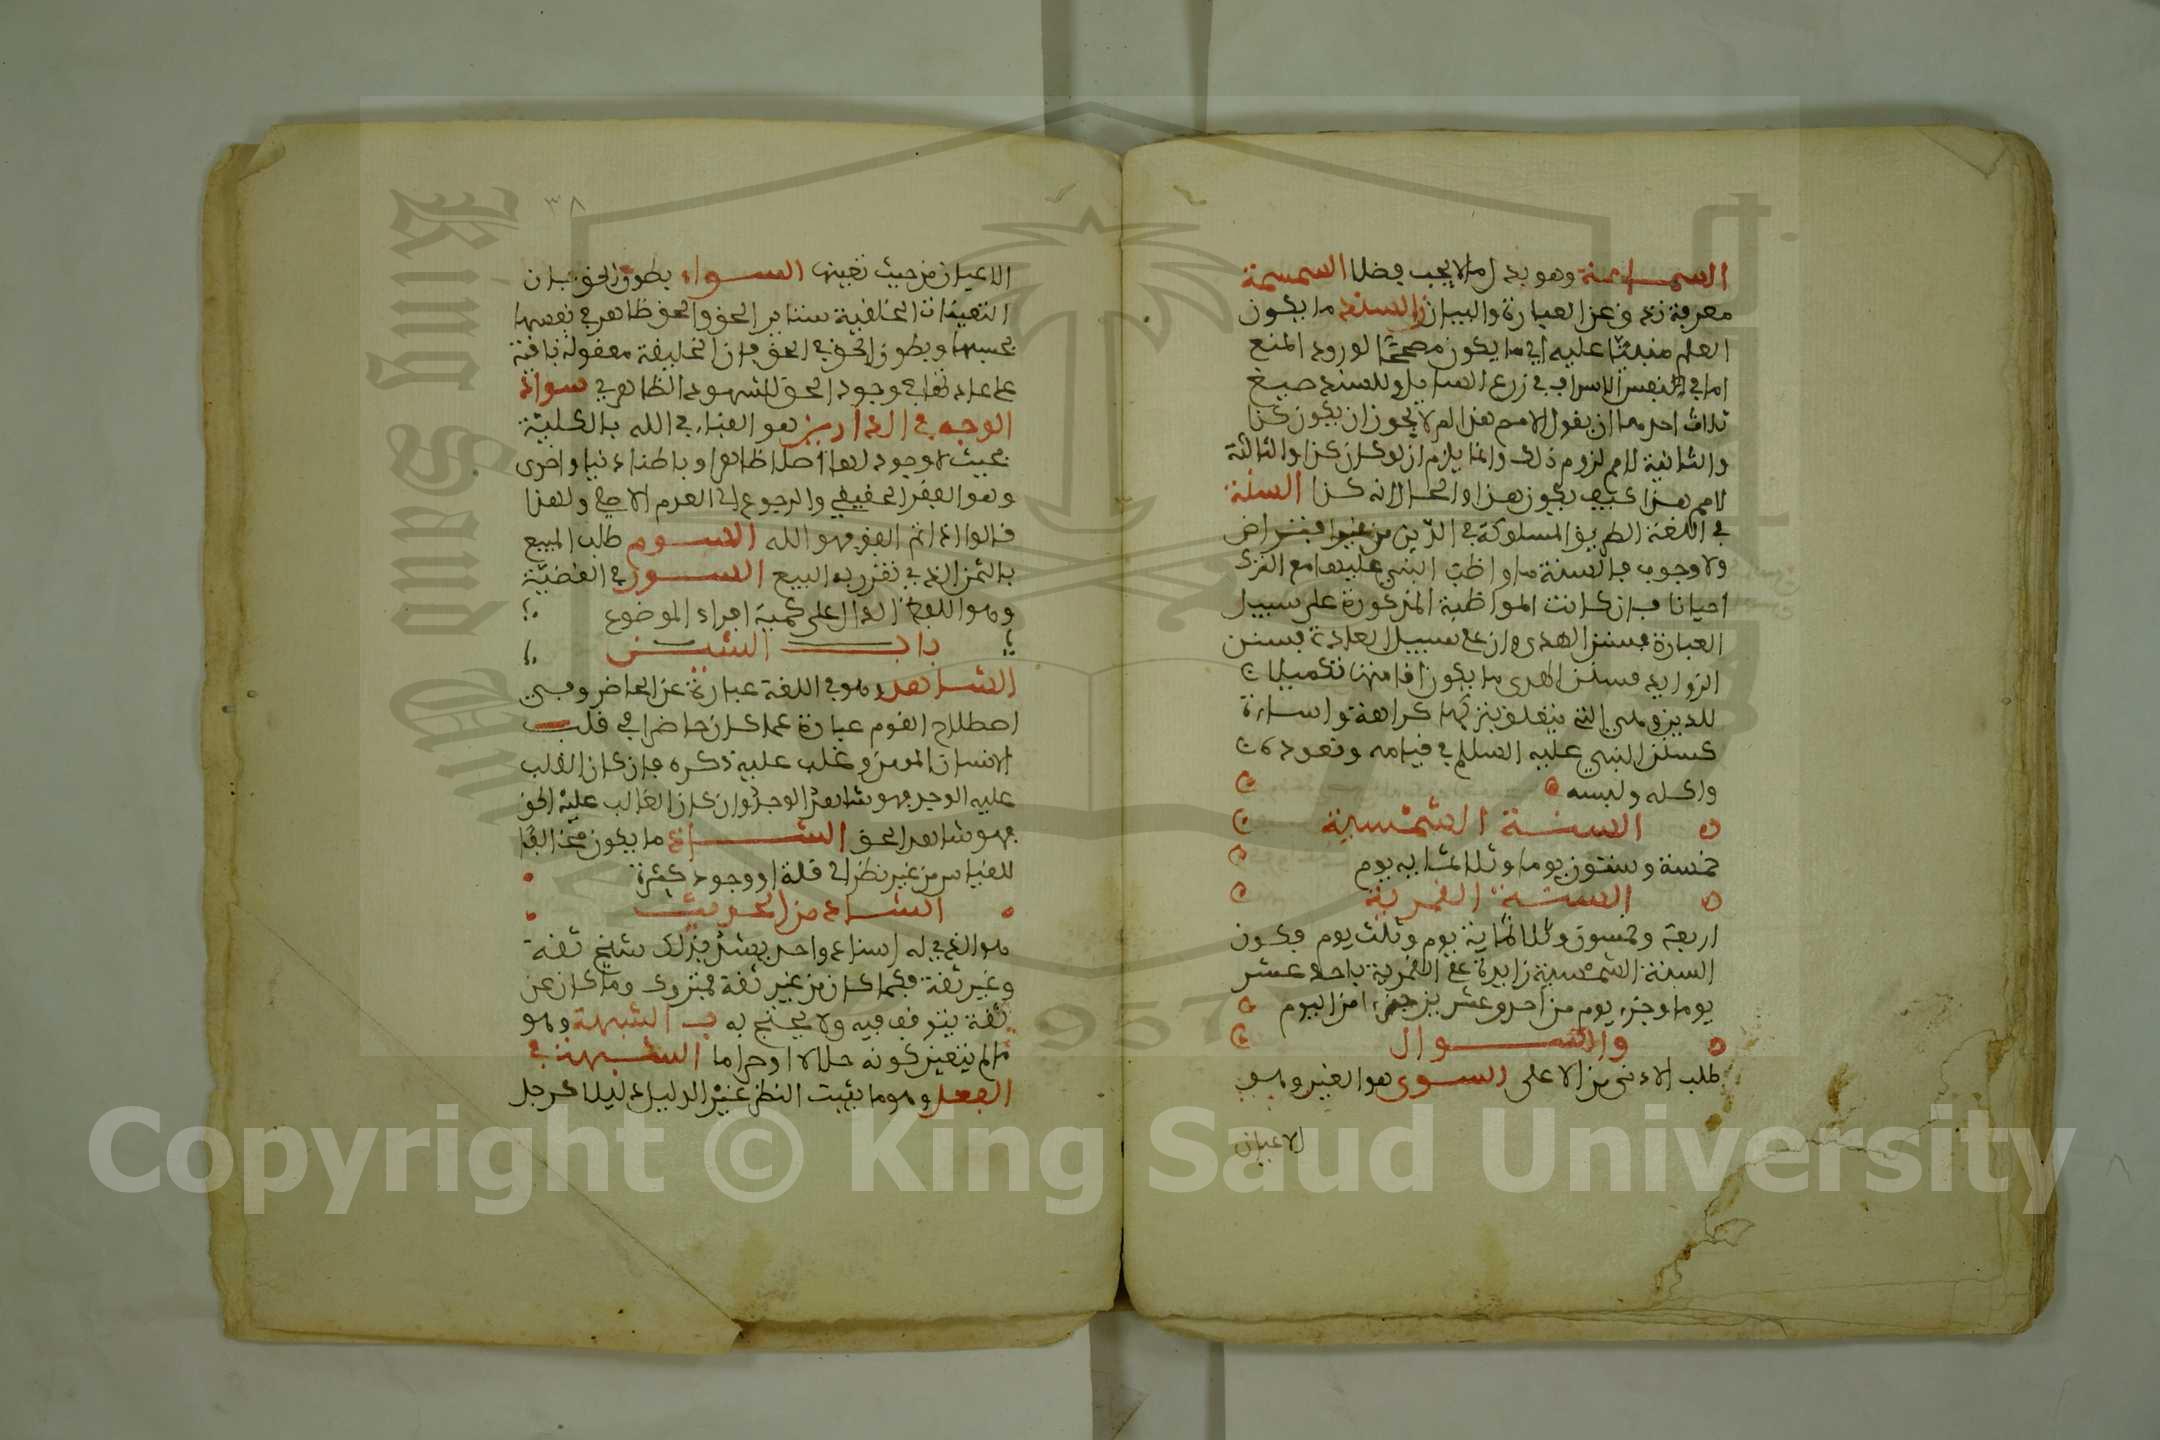 السماحة وهو بذل ما لا يجب فضلا السمسمة
معرفة تدق عن العبارة والبيان السند ما يكون
المنع مبنيا عليه اي ما يكون مصححا لورود المنع
اما في نفس الامر او في زعم السايل وللسند صيغ
ثلاث احدها ان يقول لا نسلم هذا لم لا يجوز ان يكون كذا
والثانية لا نسلم لزوم ذلك وانما يلزم ان لو كان كذا والثالثة
لا نسلم هذا كيف يكون هذا والحال انه كذا السنة
في اللغة الطريق المسلوكة في الدين من غير افتراض
ولا وجوب فالسنة ما واظب النبي عليها مع الترك
احيانا فان كانت المواظبة المذكورة على سبيل
العبارة فسنن الهدى وان على سبيل العادة فسنن
الزوايد فسنن الهدى ما يكون اقامتها تكميلا
للدين وهي التي يتعلق بتركها كراهة واساءة
كسنن النبي عليه السلام في قيامه وقعوده
واكله ولبسه
السنة الشمسية
خمسة وستون يوما وثلاثماية يوم
السنة القمرية
اربعة وخمسون وثلاثماية يوم وثلث يوم فيكون
السنة الشمسية زايدة على القمرية باحد عشر
يوما وجزء يوم من احد وعشرين جزءا من اليوم
والسوال
طلب الادنى من الاعلى السوى هو الغير وهو
الاعيان
٣٨
الاعيان من حيث تعينها السواء بطون الحق بان
التعينات الخلقية ستاير الحق والحق ظاهر في نفسها
بحسبها وبطون الحق في الحق فان الخليقة معقولة باقية
على عدمتها في وجود الحق المشهود الظاهر في سواد
الوجه في الدارين هو الفناء في الله بالكلية
بحيث لا وجود لها اصلا ظاهرا وباطنا دنيا واخرى
وهو الفقر الحقيقي والرجوع الى العدم الاصلي ولهذا
قالوا اذا تم الفقر فهو الله السوم طلب المبيع
بالثمن الذي تقرر به البيع السور في القضية
وهو اللفظ الدال على كمية افراد الموضوع
باب الشين
الشاهد وهو في اللغة عبارة عن الحاضر وفي
اصطلاح القوم عبارة عما كان حاضرا في قلب
الانسان المومن وغلب عليه ذكره فان كان الغالب
عليه الوجد فهو شاهد الوجد وان كان الغالب عليه الحق
فهو شاهد الحق الشاذ ما يكون مخالفا
للقياس من غير نظر الى قلة او وجود كثرة
الشاذ من الحديث
هو الذي له اسناد واحد يشذ بذلك شيخ ثقة
وغير ثقة فكما كان من غير ثقة فمتروك وما كان عن
ثقة يتوقف فيه ولا يحتج به الشبهة وهو
ما لم يتعين كونه حلالا او حراما الشبهة في
الفعل وهو ما يثبت النظر غير الدليل دليلا كرجل
King Saud University
1957
Copyright © King Saud University